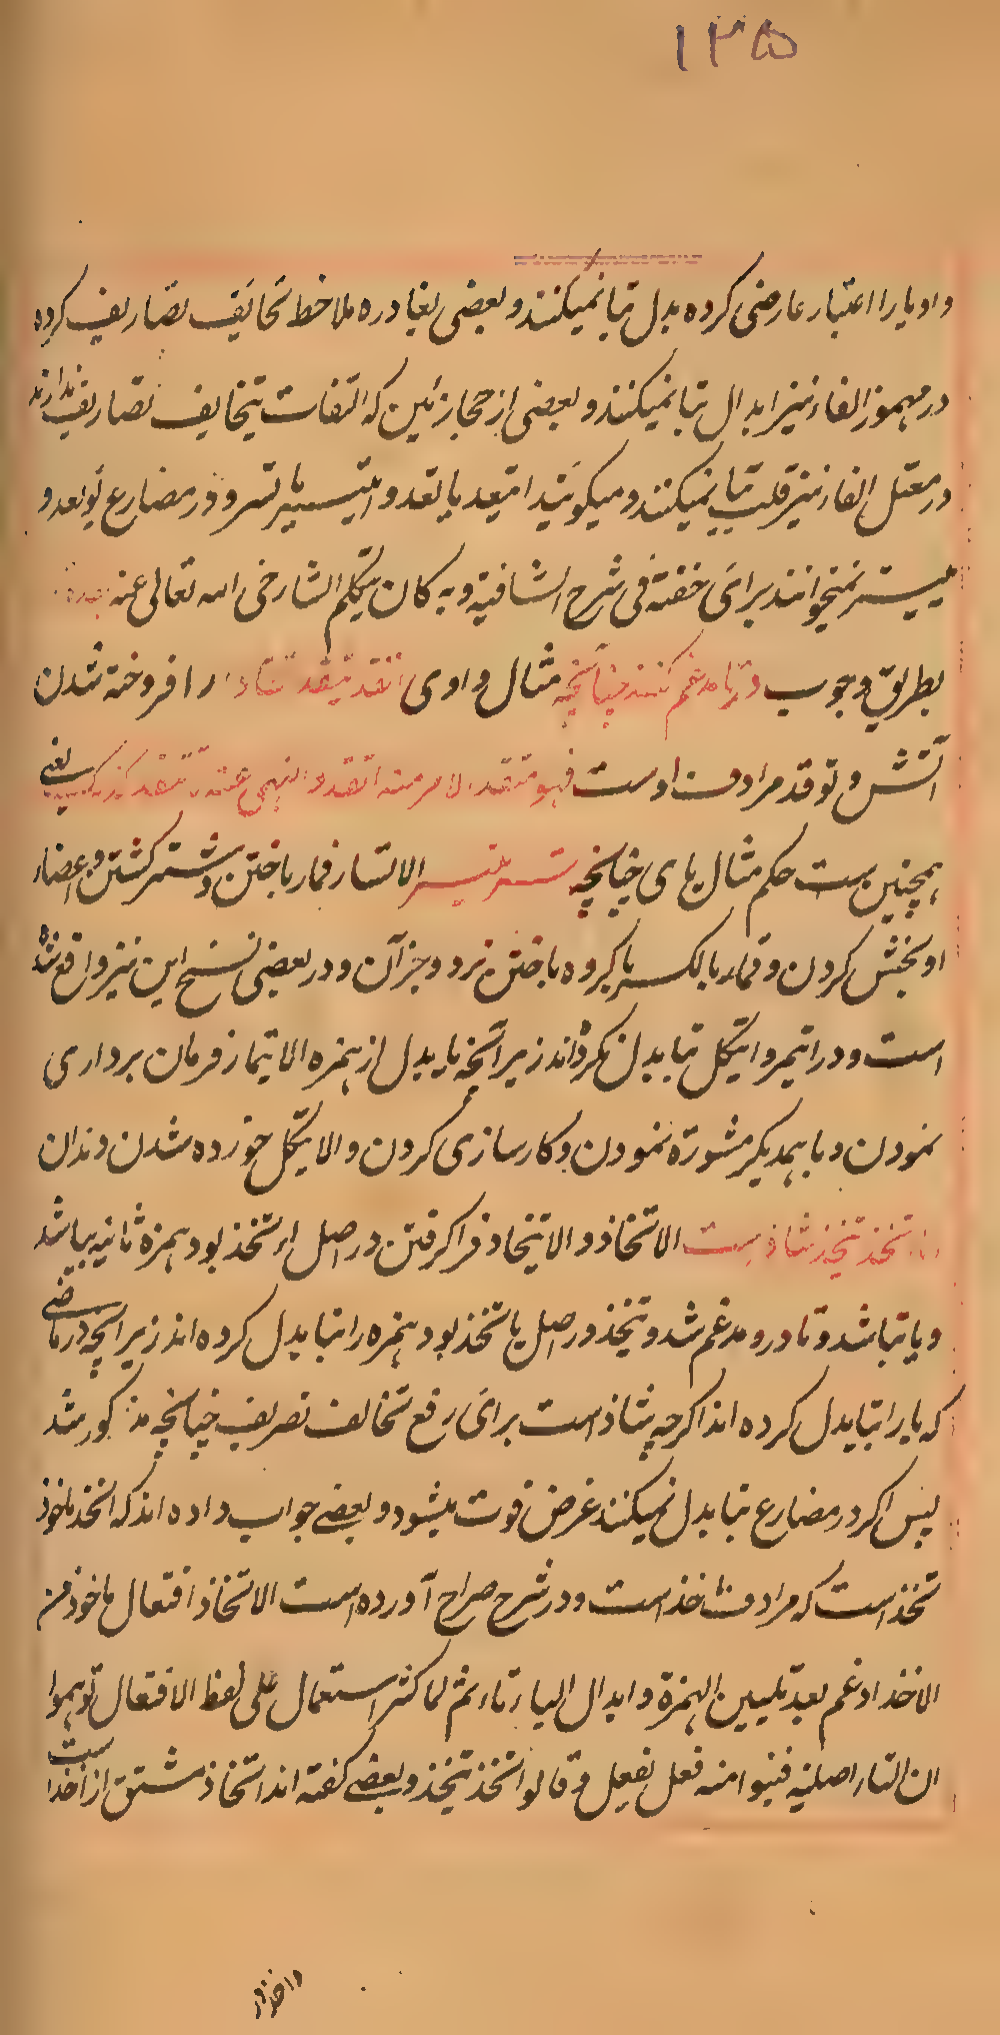 ۱۳۵
و او یا را اعتبار عارضی کرده بدل بتا نمیکنند و بعضی بغاددره ملاحظ تخالف تصاریف کرده
در مهموز الفاء نیز ابدال بتا نمیکنند و بعضی از حجازئین که التفات بتخالف تصاریف ندارند
در معتل الفاء نیز قلب بتا نمیکنند و میکویند ایتعد یاتعد و ایتسر یاتسر و در مضارع یوتعد و
ییتسر نمیخوانند برای خفته فی شرح الشافیة و به کان یتکلم الشارخی الله تعالی عنه
بطریق وجوب در تا مدغم کنند چنانچه مثال واوی اتقد یتقد اتقادا را فروخته شدن
آتش و توقد مرادف اوست فهو متقد الامر منه اتقد و النهی عنه لا تتقد کذلک یعنی
همچنین ست حکم مثال یای چنانچه اتسر یتسر الاتسار قمار باختن و شتر کشتن و اعضاء
او بخش کردن و قمار بالکسر با کرو باختن نرد و جز آن و در بعضی نسخ این نیز واقع شده
است و در ایتمر و ایتکل بتا بدل نکرده اند زیرا آنچه یا بدل از همزه الایتمار فرمان برداری
نمودن و با همدیکر مشورة نمودن و کارسازی کردن و الایتکل خورده شدن دندان
اما اتخذ یتخذ شاذ ست الاتخاذ و الایتخاذ فرا کرفتن در اصل اءتخذ بود همزه ثانیه بیا شد
و یا بتا شد و تا در و مدغم شد و یتخذ در اصل یاتخذ بود همزه را بتا بدل کرده اند زیرا آنچه در ماضی
که یا را بتا بدل کرده اند اکرچه شاذ است برای رفع تخالف تصریف چنانچه مذکور شد
پس اکر در مضارع بتا بدل نمیکنند غرض فوت میشود و بعضی جواب داده اند که اتخذ ماخوذ
تخذ است که مرادف اخذ است و در شرح صراح آورده است الاتخاذ افتعال ماخوذ من
الاخذ ادغم بعد تلیین الهمزة و ابدال الیاء تاء ثم لما کثر استعمال علی لفظ الافتعال توهموا
ان التاء اصلیة فبنوا منه فعل یفعل و قالوا تخذ یتخذ و بعضی کفته اند اتخاذ مشتق از اخذ است